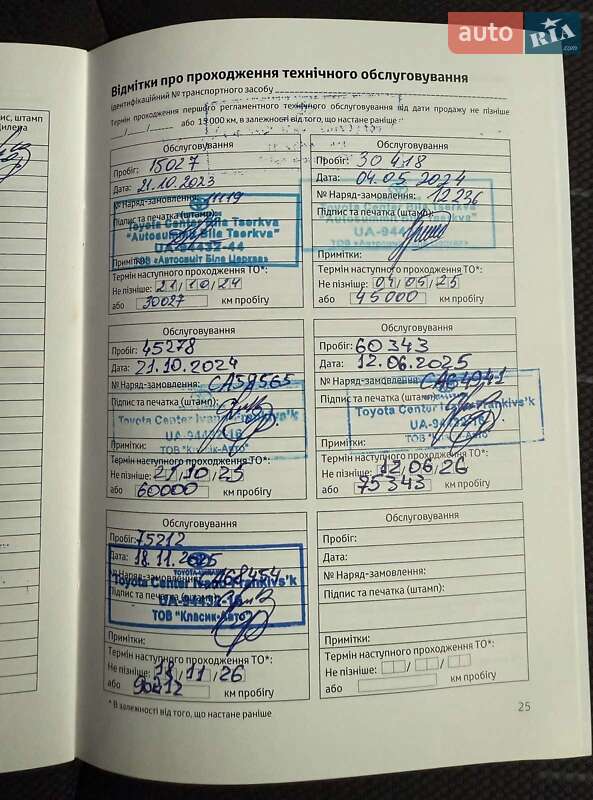 auto RIA .com
ис, штамп
дилера
Відмітки про проходження технічного обслуговування
Ідентифікаційний № транспортного засобу
Термін проходження першого регламентного технічного обслуговування від дати продажу не пізніше
/ / або 15000 км, в залежності від того, що настане раніше
Обслуговування
Пробіг: 15027
Дата: 21.10.2023
№ Наряд-замовлення: 11119
Підпис та печатка (штамп):
Toyota Center Bila Tserkva
"Autosumit Bila Tserkva"
UA-94432-44
ТОВ «Автосвіт Біла Церква»
Примітки:
Термін наступного проходження ТО*:
Не пізніше: 21/10/24
або 30027 км пробігу
Обслуговування
Пробіг: 30 418
Дата: 04.05.2024
№ Наряд-замовлення: 12236
Підпис та печатка (штамп):
Toyota Center Bila Tserkva
"Autosumit Bila Tserkva"
ТОВ «Автосвіт Біла Церква»
Примітки:
Термін наступного проходження ТО*:
Не пізніше: 04/05/25
або 45000 км пробігу
Обслуговування
Пробіг: 45278
Дата: 21.10.2024
№ Наряд-замовлення: CA59565
Підпис та печатка (штамп):
Toyota Center Ivano-Frankivs'k
UA-94432-16
ТОВ "Класик-Авто"
Примітки:
Термін наступного проходження ТО*:
Не пізніше: 21/10/25
або 60000 км пробігу
Обслуговування
Пробіг: 60343
Дата: 12.06.2025
№ Наряд-замовлення: CA64941
Підпис та печатка (штамп):
Toyota Center Ivano-Frankivs'k
UA-94432-16
ТОВ "Класик-Авто"
Примітки:
Термін наступного проходження ТО*:
Не пізніше: 12/06/26
або 75343 км пробігу
Обслуговування
Пробіг: 75212
Дата: 18.11.2025
№ Наряд-замовлення: CA68454
Підпис та печатка (штамп):
Toyota Center Ivano-Frankivs'k
UA-94432-16
ТОВ "Класик-Авто"
Примітки:
Термін наступного проходження ТО*:
Не пізніше: 18/11/26
або 90212 км пробігу
Обслуговування
Пробіг:
Дата:
№ Наряд-замовлення:
Підпис та печатка (штамп):
Примітки:
Термін наступного проходження ТО*:
Не пізніше: / /
або км пробігу
* В залежності від того, що настане раніше
25